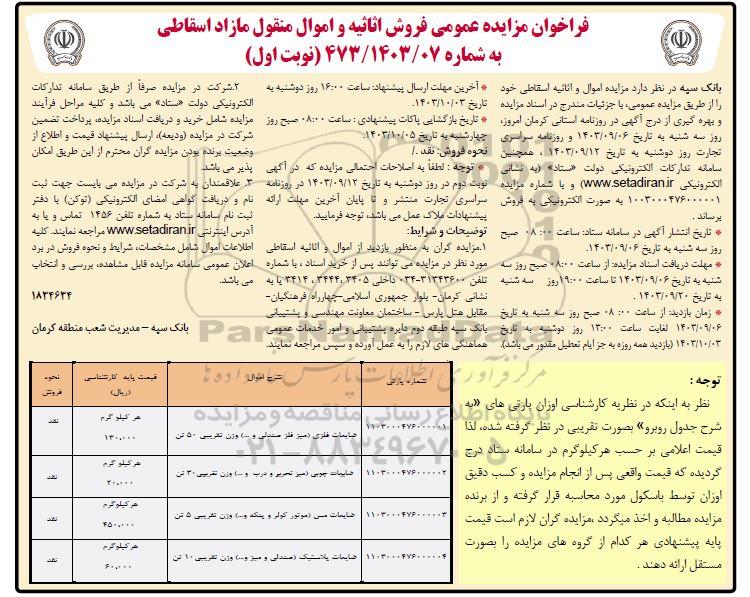 فراخوان مزایده عمومی فروش اثاثیه و اموال منقول مازاد اسقاطی
به شماره ۴۷۳/۱۴۰۳/۰۷ (نوبت اول)
بانک سپه در نظر دارد مزایده اموال و اثاثیه اسقاطی خود
را از طریق مزایده عمومی، با جزئیات مندرج در اسناد مزایده
و بهره گیری از درج آگهی در روزنامه استانی کرمان امروز،
روز سه شنبه به تاریخ ۱۴۰۳/۰۹/۰۶ و روزنامه سراسری
تجارت روز دوشنبه به تاریخ ۱۴۰۳/۰۹/۱۲ ، همچنین
سامانه تدارکات الکترونیکی دولت «ستاد» (به نشانی
الکترونیکی www.setadiran.ir) و با شماره مزایده
۱۰۰۳۰۰۰۴۷۶۰۰۰۰۰۱ به صورت الکترونیکی به فروش
برساند .
* تاریخ انتشار آگهی در سامانه ستاد: ساعت ۰۸:۰۰ صبح
روز سه شنبه به تاریخ ۱۴۰۳/۰۹/۰۶.
* مهلت دریافت اسناد مزایده: از ساعت ۰۸:۰۰ صبح روز سه
به تاریخ ۱۴۰۳/۰۹/۰۶ تا ساعت ۱۹:۰۰ روز سه شنبه به
تاریخ ۱۴۰۳/۰۹/۲۰ .
* زمان بازدید: از ساعت ۰۸:۰۰ صبح روز سه شنبه به تاریخ
۱۴۰۳/۰۹/۰۶ لغایت ساعت ۱۳:۰۰ روز دوشنبه به تاریخ
۱۴۰۳/۱۰/۰۳ (بازدید همه روزه به جز ایام تعطیل مقدور می باشد).
* آخرین مهلت ارسال پیشنهاد: ساعت ۱۶:۰۰ روز دوشنبه به
تاریخ ۱۴۰۳/۱۰/۰۳.
* تاریخ بازگشایی پاکات پیشنهادی : ساعت ۰۸:۰۰ صبح روز
چهارشنبه به تاریخ ۱۴۰۳/۱۰/۰۵.
نحوه فروش: نقد .
* توجه : لطفاً به اصلاحات احتمالی مزایده که در آگهی
نوبت دوم در روز دوشنبه به تاریخ ۱۴۰۳/۰۹/۱۲ در روزنامه
سراسری تجارت منتشر و تا پایان آخرین مهلت ارائه
پیشنهادات ملاک عمل می باشد، توجه فرمایید.
توضیحات و شرایط:
۱.مزایده گران به منظور بازدید از اموال و اثاثیه اسقاطی
مورد نظر در مزایده می توانند پس از خرید اسناد ، با شماره
تلفن ۳۱۳۴۳۶۰۰-۰۳۴ داخلی ۳۴۰۵ ،۳۴۴۴ ، ۳۴۱۴ یا به
نشانی کرمان- بلوار جمهوری اسلامی-چهارراه فرهنگیان-
مقابل هتل پارس - ساختمان معاونت مهندسی و پشتیبانی
بانک سپه طبقه دوم دایره پشتیبانی و امور خدمات عمومی
هماهنگی های لازم را به عمل آورده و سپس مراجعه نمایند.
۲.شرکت در مزایده صرفاً از طریق سامانه تدارکات
الکترونیکی دولت «ستاد» می باشد و کلیه مراحل فرآیند
مزایده شامل خرید و دریافت اسناد مزایده، پرداخت تضمین
شرکت در مزایده (ودیعه)، ارسال پیشنهاد قیمت و اطلاع از
وضعیت برنده بودن مزایده گران محترم از این طریق امکان
پذیر می باشد.
۳. علاقمندان به شرکت در مزایده می بایست جهت ثبت
نام و دریافت گواهی امضای الکترونیکی (توکن) با دفتر
ثبت نام سامانه ستاد به شماره تلفن ۱۴۵۶ تماس و یا به
آدرس اینترنتی www.setadiran.ir مراجعه نمایند. کلیه
اطلاعات اموال شامل مشخصات، شرایط و نحوه فروش در برد
اعلان عمومی سامانه مزایده قابل مشاهده، بررسی و انتخاب
می باشد.
۱۸۳۴۶۳۴
بانک سپه – مدیریت شعب منطقه کرمان
توجه :
نظر به اینکه در نظریه کارشناسی اوزان پارتی های «به
شرح جدول روبرو» بصورت تقریبی در نظر گرفته شده، لذا
قیمت اعلامی بر حسب هرکیلوگرم در سامانه ستاد درج
گردیده که قیمت واقعی پس از انجام مزایده و کسب دقیق
اوزان توسط باسکول مورد محاسبه قرار گرفته و از برنده
مزایده مطالبه و اخذ میگردد ،مزایده گران لازم است قیمت
پایه پیشنهادی هر کدام از گروه های مزایده را بصورت
مستقل ارائه دهند .
شماره پارتی	شرح اموال	قیمت پایه کارشناسی (ریال)	نحوه فروش
۱۱۰۳۰۰۰۴۷۶۰۰۰۰۰۱	ضایعات فلزی (میز فلز صندلی و ...) وزن تقریبی ۵۰ تن	هر کیلو گرم ۱۳۰.۰۰۰	نقد
۱۱۰۳۰۰۰۴۷۶۰۰۰۰۰۲	ضایعات چوبی (میز تحریر و درب و ...) وزن تقریبی۳۰ تن	هر کیلو گرم ۲۰.۰۰۰	نقد
۱۱۰۳۰۰۰۴۷۶۰۰۰۰۰۳	ضایعات مس (موتور کولر و پنکه و...) وزن تقریبی ۵ تن	هرکیلوگرم ۴۵۰.۰۰۰	نقد
۱۱۰۳۰۰۰۴۷۶۰۰۰۰۰۴	ضایعات پلاستیک (صندلی و میز و...) وزن تقریبی ۱۰ تن	هرکیلوگرم ۶۰.۰۰۰	نقد
ParsNamadData
مرکز فرآوری اطلاعات پارس نماد داده ها
پایگاه اطلاع رسانی مناقصه و مزایده
۰۲۱-۸۸۳۴۹۶۷۰-۵